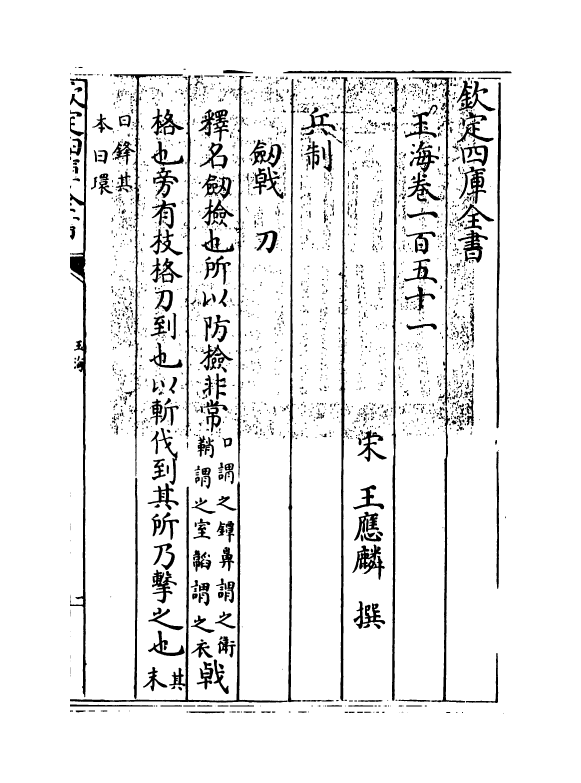 欽定四庫全書
玉海卷一百五十一
宋 王應麟 撰
兵制
劒戟 刀
釋名劒撿也所以防撿非常口謂之鐔鼻謂之衛鞘謂之室韜謂之衣戟
格也旁有技格刀到也以斬伐到其所乃擊之也其末
曰鋒其本曰環
欽定四庫全書
玉海
一